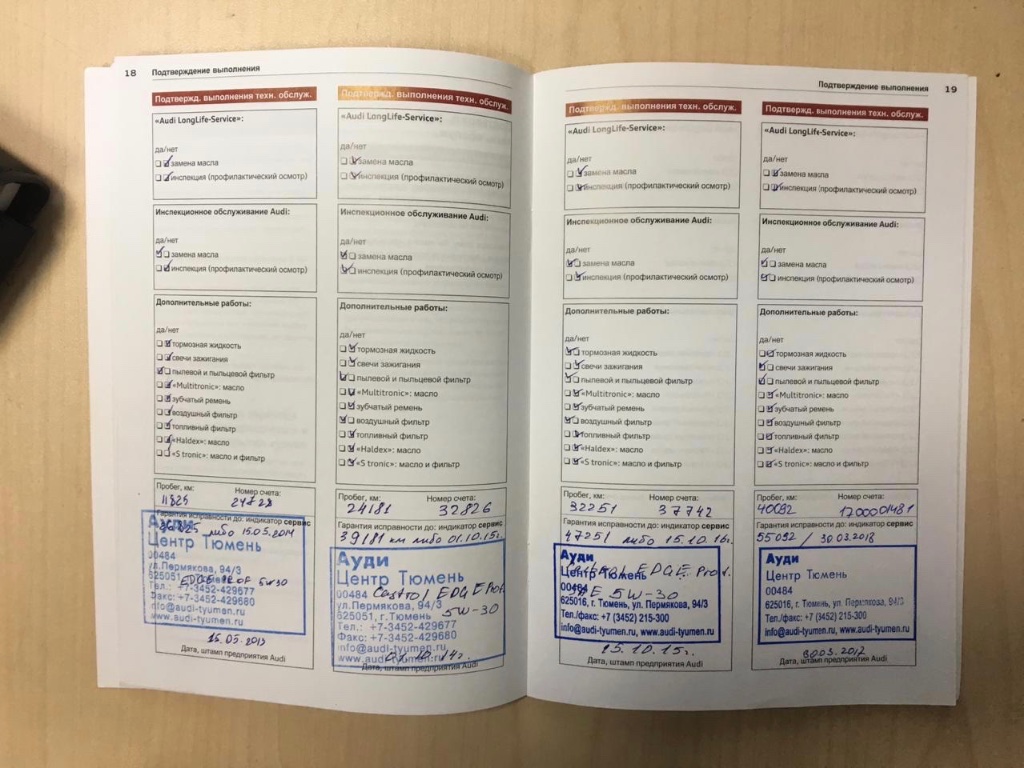 18 Подтверждение выполнения
Подтвержд. выполнения техн. обслуж.
«Audi LongLife-Service»:
да/нет
замена масла
инспекция (профилактический осмотр)
Инспекционное обслуживание Audi:
да/нет
замена масла
инспекция (профилактический осмотр)
Дополнительные работы:
да/нет
тормозная жидкость
свечи зажигания
пылевой и пыльцевой фильтр
«Multitronic»: масло
зубчатый ремень
воздушный фильтр
топливный фильтр
«Haldex»: масло
«S tronic»: масло и фильтр
Пробег, км: Номер счета:
Гарантия исправности до: индикатор сервис
либо 15.05.2014
Ауди
Центр Тюмень
00484
ул.Пермякова, 94/3
625051,
5w30
Тел.: +7-3452-429677
Факс: +7-3452-429680
info@audi-tyumen.ru
www.audi-tyumen.ru
15.05.2013
Дата, штамп предприятия Audi
Подтвержд. выполнения техн. обслуж.
«Audi LongLife-Service»:
да/нет
замена масла
инспекция (профилактический осмотр)
Инспекционное обслуживание Audi:
да/нет
замена масла
инспекция (профилактический осмотр)
Дополнительные работы:
да/нет
тормозная жидкость
свечи зажигания
пылевой и пыльцевой фильтр
«Multitronic»: масло
зубчатый ремень
воздушный фильтр
топливный фильтр
«Haldex»: масло
«S tronic»: масло и фильтр
Пробег, км: Номер счета:
24181 32826
Гарантия исправности до: индикатор сервис
39181 км либо 01.10.15г.
Ауди
Центр Тюмень
00484 Castrol EDGE Prof.
ул.Пермякова, 94/3
5W-30
625051, г. Тюмень
Тел.: +7-3452-429677
Факс: +7-3452-429680
info@audi-tyumen.ru
www.audi-tyumen.ru
01.10.14г.
Дата, штамп предприятия Audi
Подтверждение выполнения 19
Подтвержд. выполнения техн. обслуж.
«Audi LongLife-Service»:
да/нет
замена масла
инспекция (профилактический осмотр)
Инспекционное обслуживание Audi:
да/нет
замена масла
инспекция (профилактический осмотр)
Дополнительные работы:
да/нет
тормозная жидкость
свечи зажигания
пылевой и пыльцевой фильтр
«Multitronic»: масло
зубчатый ремень
воздушный фильтр
топливный фильтр
«Haldex»: масло
«S tronic»: масло и фильтр
Пробег, км: Номер счета:
32251 37742
Гарантия исправности до: индикатор сервис
47251 либо 15.10.16г.
Ауди
EDGE Prof.
Центр Тюмень
00484
5W-30
625016, г. Тюмень, ул. Пермякова, 94/3
Тел./факс: +7 (3452) 215-300
info@audi-tyumen.ru, www.audi-tyumen.ru
15.10.15г.
Дата, штамп предприятия Audi
Подтвержд. выполнения техн. обслуж.
«Audi LongLife-Service»:
да/нет
замена масла
инспекция (профилактический осмотр)
Инспекционное обслуживание Audi:
да/нет
замена масла
инспекция (профилактический осмотр)
Дополнительные работы:
да/нет
тормозная жидкость
свечи зажигания
пылевой и пыльцевой фильтр
«Multitronic»: масло
зубчатый ремень
воздушный фильтр
топливный фильтр
«Haldex»: масло
«S tronic»: масло и фильтр
Пробег, км: Номер счета:
40092
Гарантия исправности до: индикатор сервис
55092 / 30.03.2018
Ауди
Центр Тюмень
00484
625016, г. Тюмень, ул. Пермякова, 94/3
Тел./факс: +7 (3452) 215-300
info@audi-tyumen.ru, www.audi-tyumen.ru
30.03.2017
Дата, штамп предприятия Audi